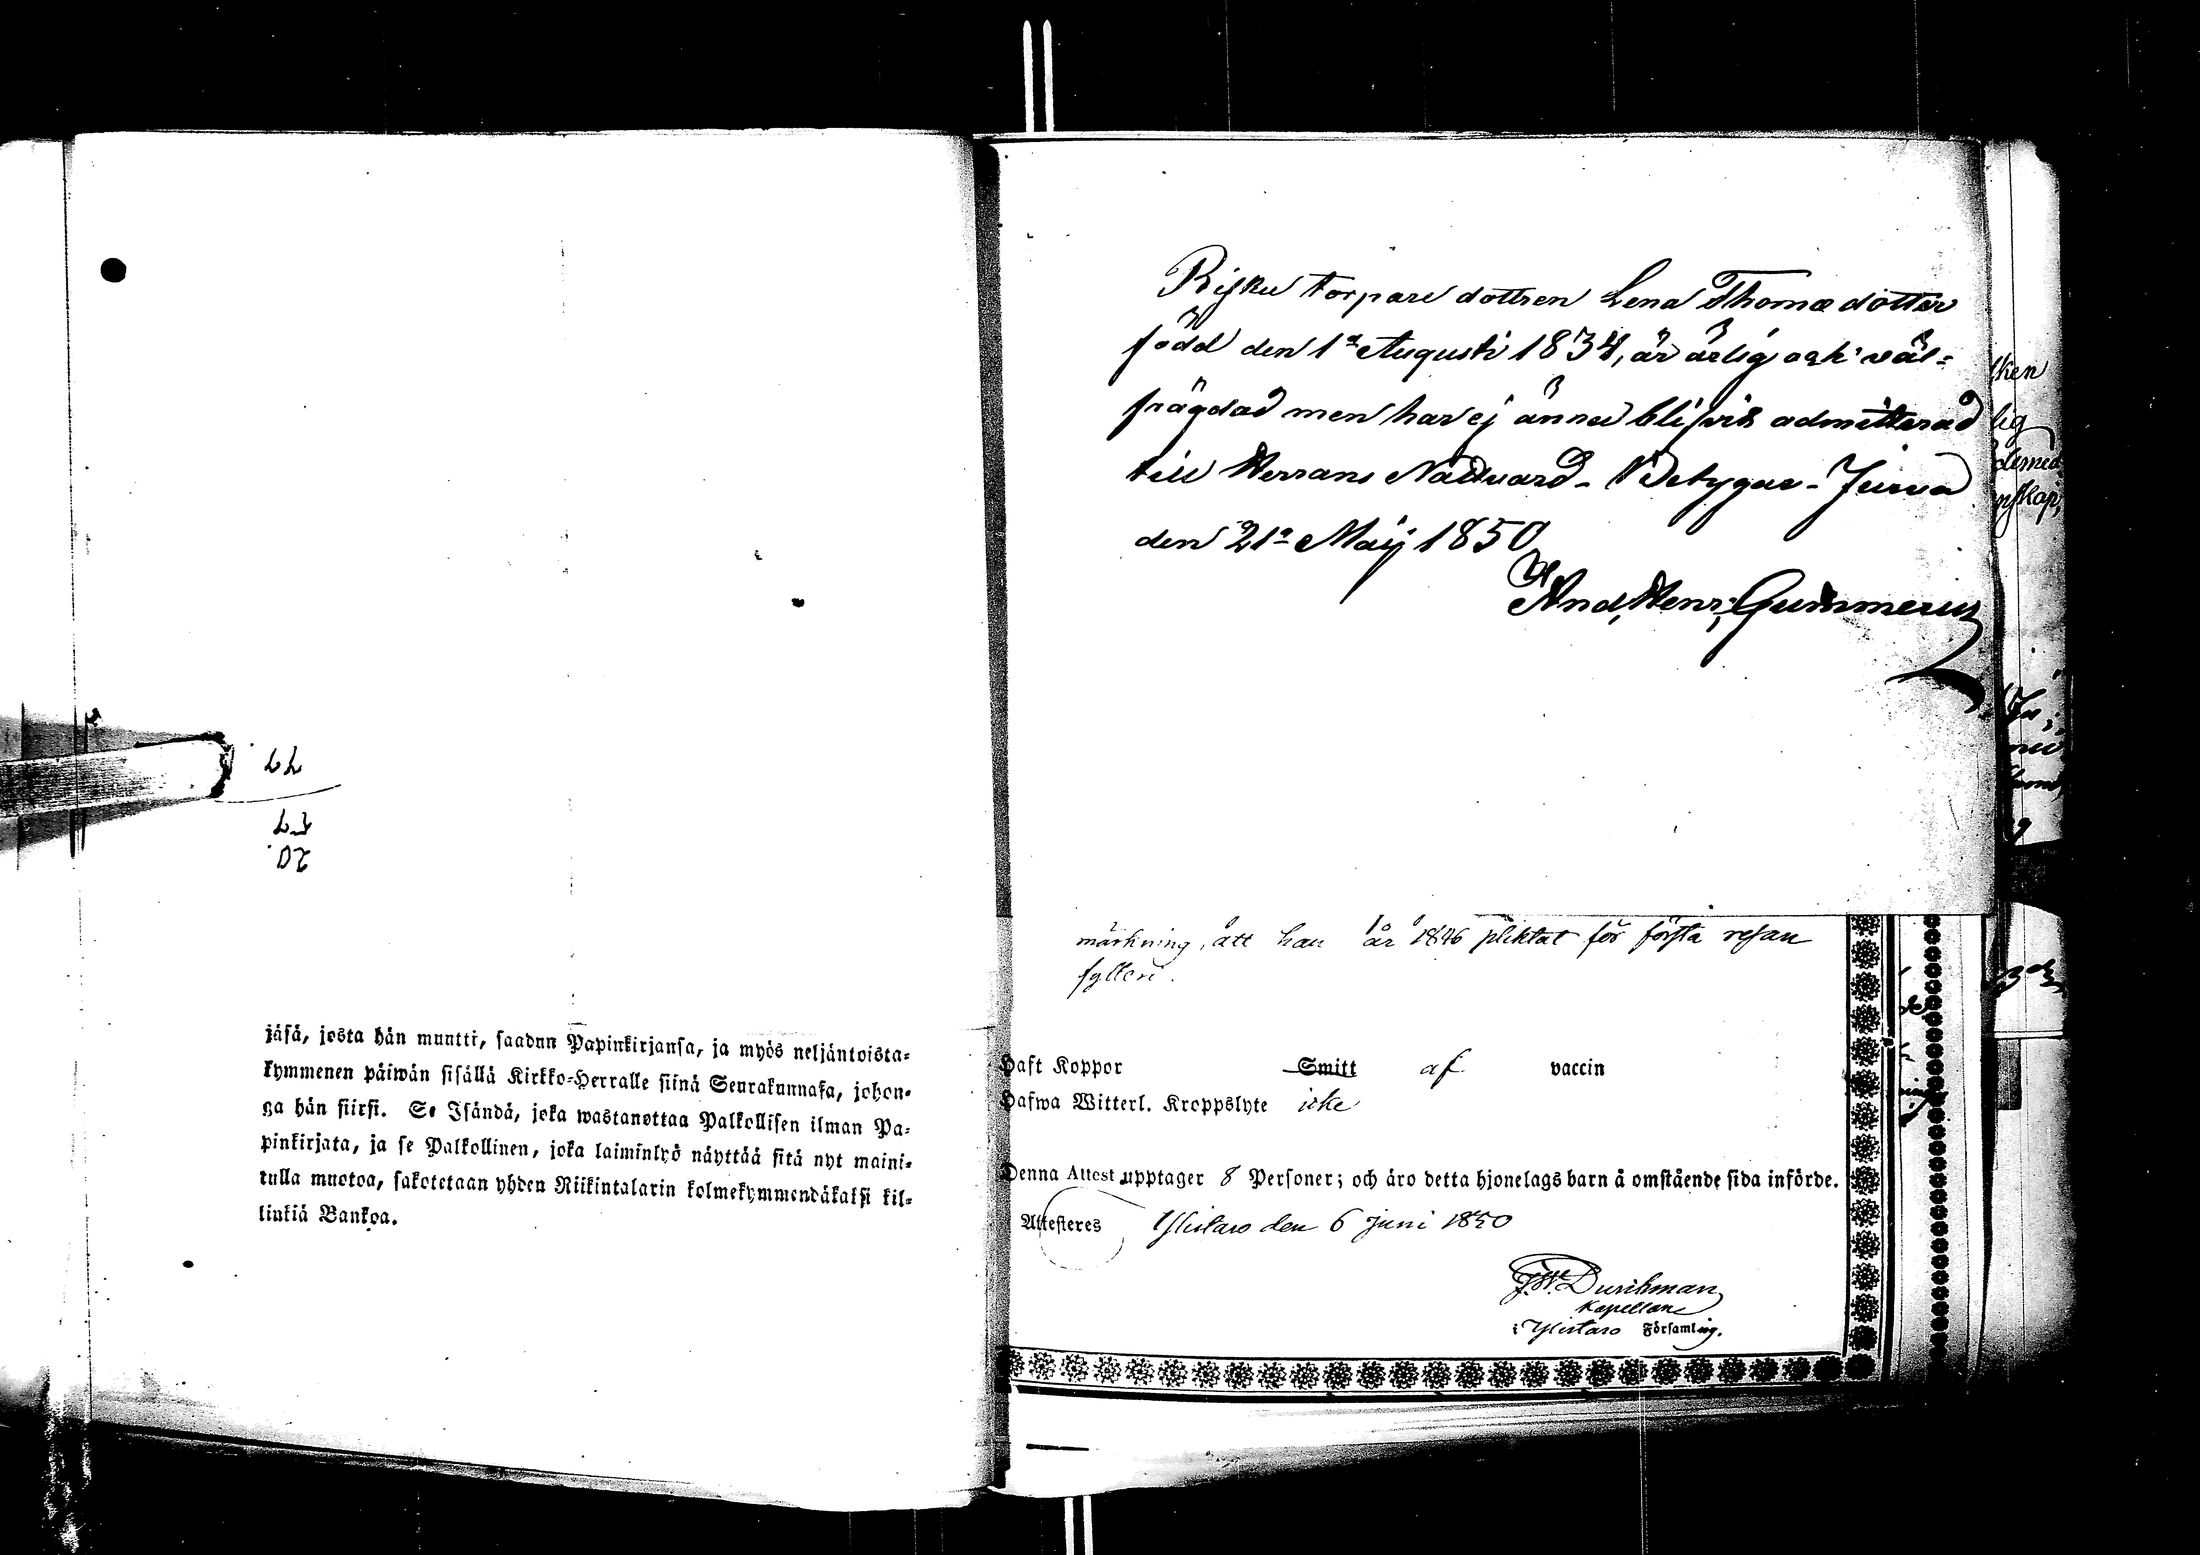 77
57
20
jäsä, josta hän muutti, saadun Papinkirjansa, ja myös neljäntoista=
kymmenen päiwän sisällä Kirkko=Herralle siinä Seurakunnasa, johon=
ga hän siirsi. Se Isändä, joka wastanottaa Palkollisen ilman Pa=
pinkirjata, ja se Palkollinen, joka laiminlyö näyttää sitä nyt maini=
tulla muotoa, sakotetaan yhden Riikintalarin kolmekymmendäkaksi kil=
linkiä Bankoa.
Risku torpare dottren Lena Thomædotter
född den 1a Augusti 1834, är ärlig och väl=
frägdad men har ej ännu blifvit admitterad
till Herrans Nattvard - Betygar - Jurva
den 21a Maij 1850
And, Henr; Gummerus
märkning, att han år 1846 pliktat för första resan
fylleri.
Haft Koppor Smitt af vaccin
Hafwa Witterl. Kroppslyte icke
Denna Attest upptager 8 Personer; och äro detta hjonelags barn å omstående sida införde.
Attesteres Ylistaro den 6 Juni 1850
F.W. Durchman
Kapellan
i Ylistaro Församling.
ken
lig